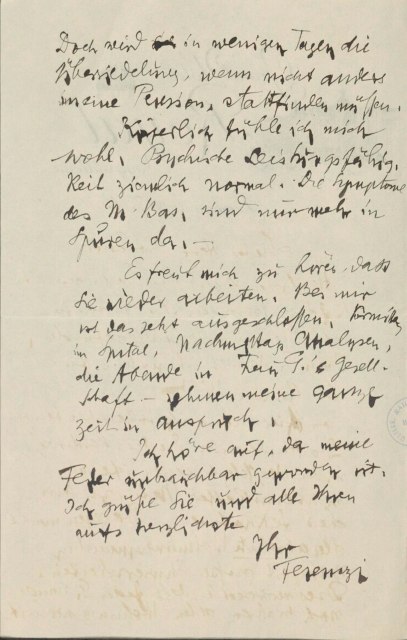 Doch wird in wenigen Tagen die
Übersiedelung, wenn nicht anders
meine Person, stattfinden müssen.
Körperlich fühle ich mich
wohl, Psychische Leistungsfähig-
keit ziemlich normal. Die Symptome
des M. Bas. sind nur mehr in
Spuren da. –
Es freut mich zu hören, dass
Sie wieder arbeiten. Bei mir
ist das jetzt ausgeschlossen,
im Spital, Nachmittag Analysen,
die Abende in Frau G.'s Gesell-
schaft – nehmen meine ganze
Zeit in Anspruch.
Ich höre auf, da meine
Feder unbrauchbar geworden ist.
Ich grüße Sie und alle Ihren
aufs herzlichste
Ihr
Ferenczi